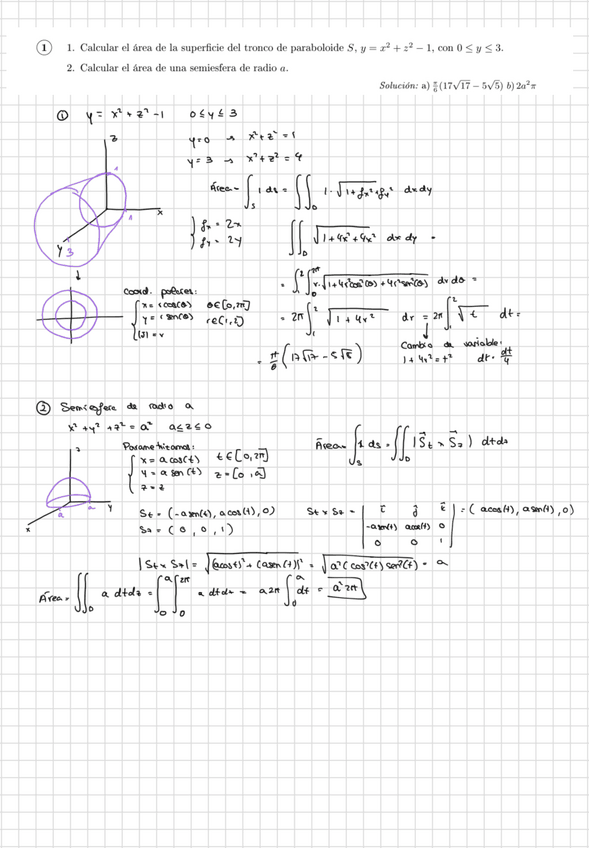 1 1. Calcular el área de la superficie del tronco de paraboloide S, y = x² + z² − 1, con 0 ≤ y ≤ 3.
2. Calcular el área de una semiesfera de radio a.
Solución: a) π/6 (17√17 − 5√5) b) 2a²π
① y = x² + z² -1 0 ≤ y ≤ 3
y=0 → x²+z² = 1
y = 3 → x²+z² = 4
z
1
1
x
y 3
Área = ∫_S 1 ds = ∬_D 1 · √(1+fx²+fy²) dxdy
{ fx = 2x
fy = 2y
∬_D √(1+4x²+4x²) dx dy =
Coord. polares:
{ x = r cos(θ) θ∈[0,2π]
y = r sin(θ) r∈[1,2]
|J| = r
= ∫_1^2 ∫_0^2π r·√(1+4r²cos²(θ) + 4r²sen²(θ)) dr dθ =
= 2π ∫_1^2 √(1+4r²) dr = 2π ∫_1^2 √t dt =
Cambio de variable:
1+4r² = t² dt · dt/4
= π/6 (17√17 - 5√5)
② Semiesfera de radio a
x² + y² + z² = a² a ≤ z ≤ 0
Parametrizamos:
{ x = a cos(t) t ∈ [0,2π]
y = a sen(t) z = [0,a]
z = z
Área = ∫_S 1 ds = ∬_D |S⃗t × S⃗z| dtdz
z
y
x
a
a
St = (-a sen(t), a cos(t), 0)
Sz = (0, 0, 1)
St × Sz = | i j k | = (a cos(t), a sen(t), 0)
-a sen(t) a cos(t) 0
0 0 1
|St × Sz| = √((a cos t)² + (a sen t)²) = √(a²(cos²(t) sen²(t)) = a
Área = ∬_D a dtdz = ∫_0^a ∫_0^2π a dtdz = a2π ∫_0^a dt = a² 2π